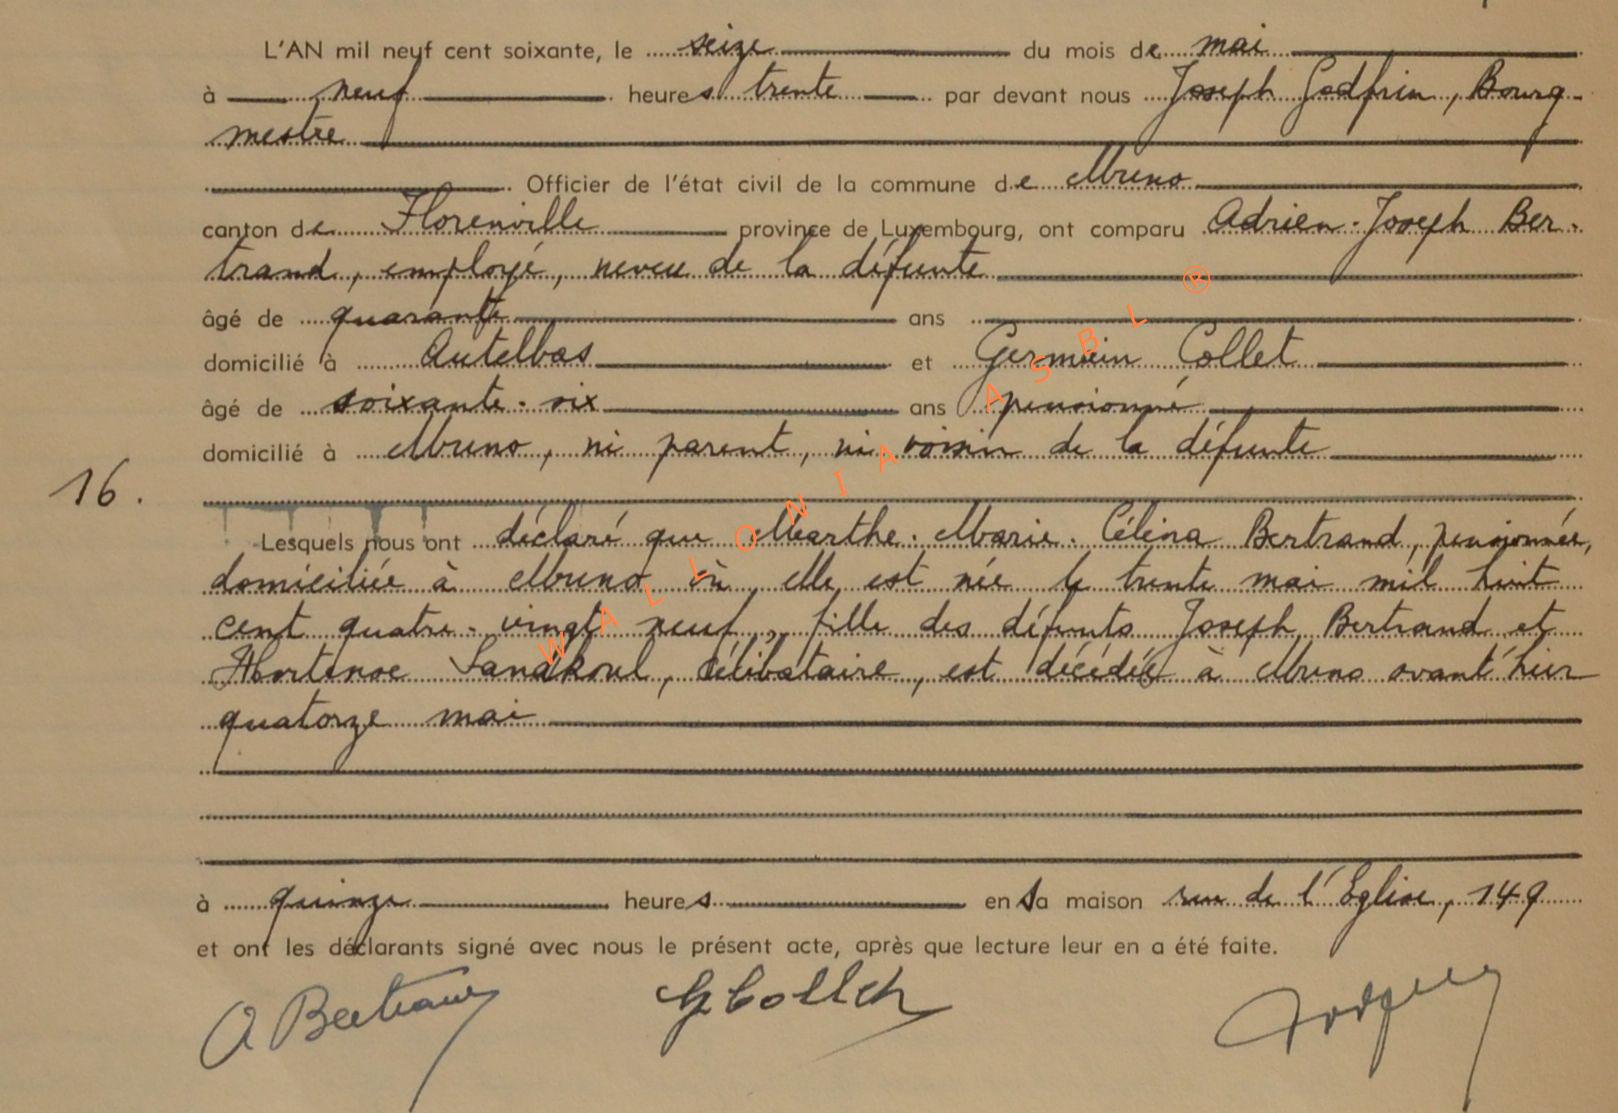 L'AN mil neuf cent soixante, le seize du mois de mai
à neuf heures trente par devant nous Joseph Godfrin, Bourg-
mestre
Officier de l'état civil de la commune de Muno
canton de Florenville province de Luxembourg, ont comparu Adrien-Joseph Ber-
trand, employé, neveu de la défunte
âgé de quarante ans
domicilié à Autelbas et Germain Collet
âgé de soixante-six ans pensionné
domicilié à Muno, ni parent, ni voisin de la défunte
16.
Lesquels nous ont déclaré que Marthe-Marie-Célina Bertrand, pensionnée,
domiciliée à Muno où elle est née le trente mai mil huit
cent quatre-vingt neuf, fille des défunts Joseph Bertrand et
Hortense Lanakoul, célibataire, est décédée à Muno avant hier
quatorze mai
à quinze heures en sa maison rue de l'Eglise, 149
et ont les déclarants signé avec nous le présent acte, après que lecture leur en a été faite.
A Bertrand G Collet Godfrin
WALLONIA ASBL ®